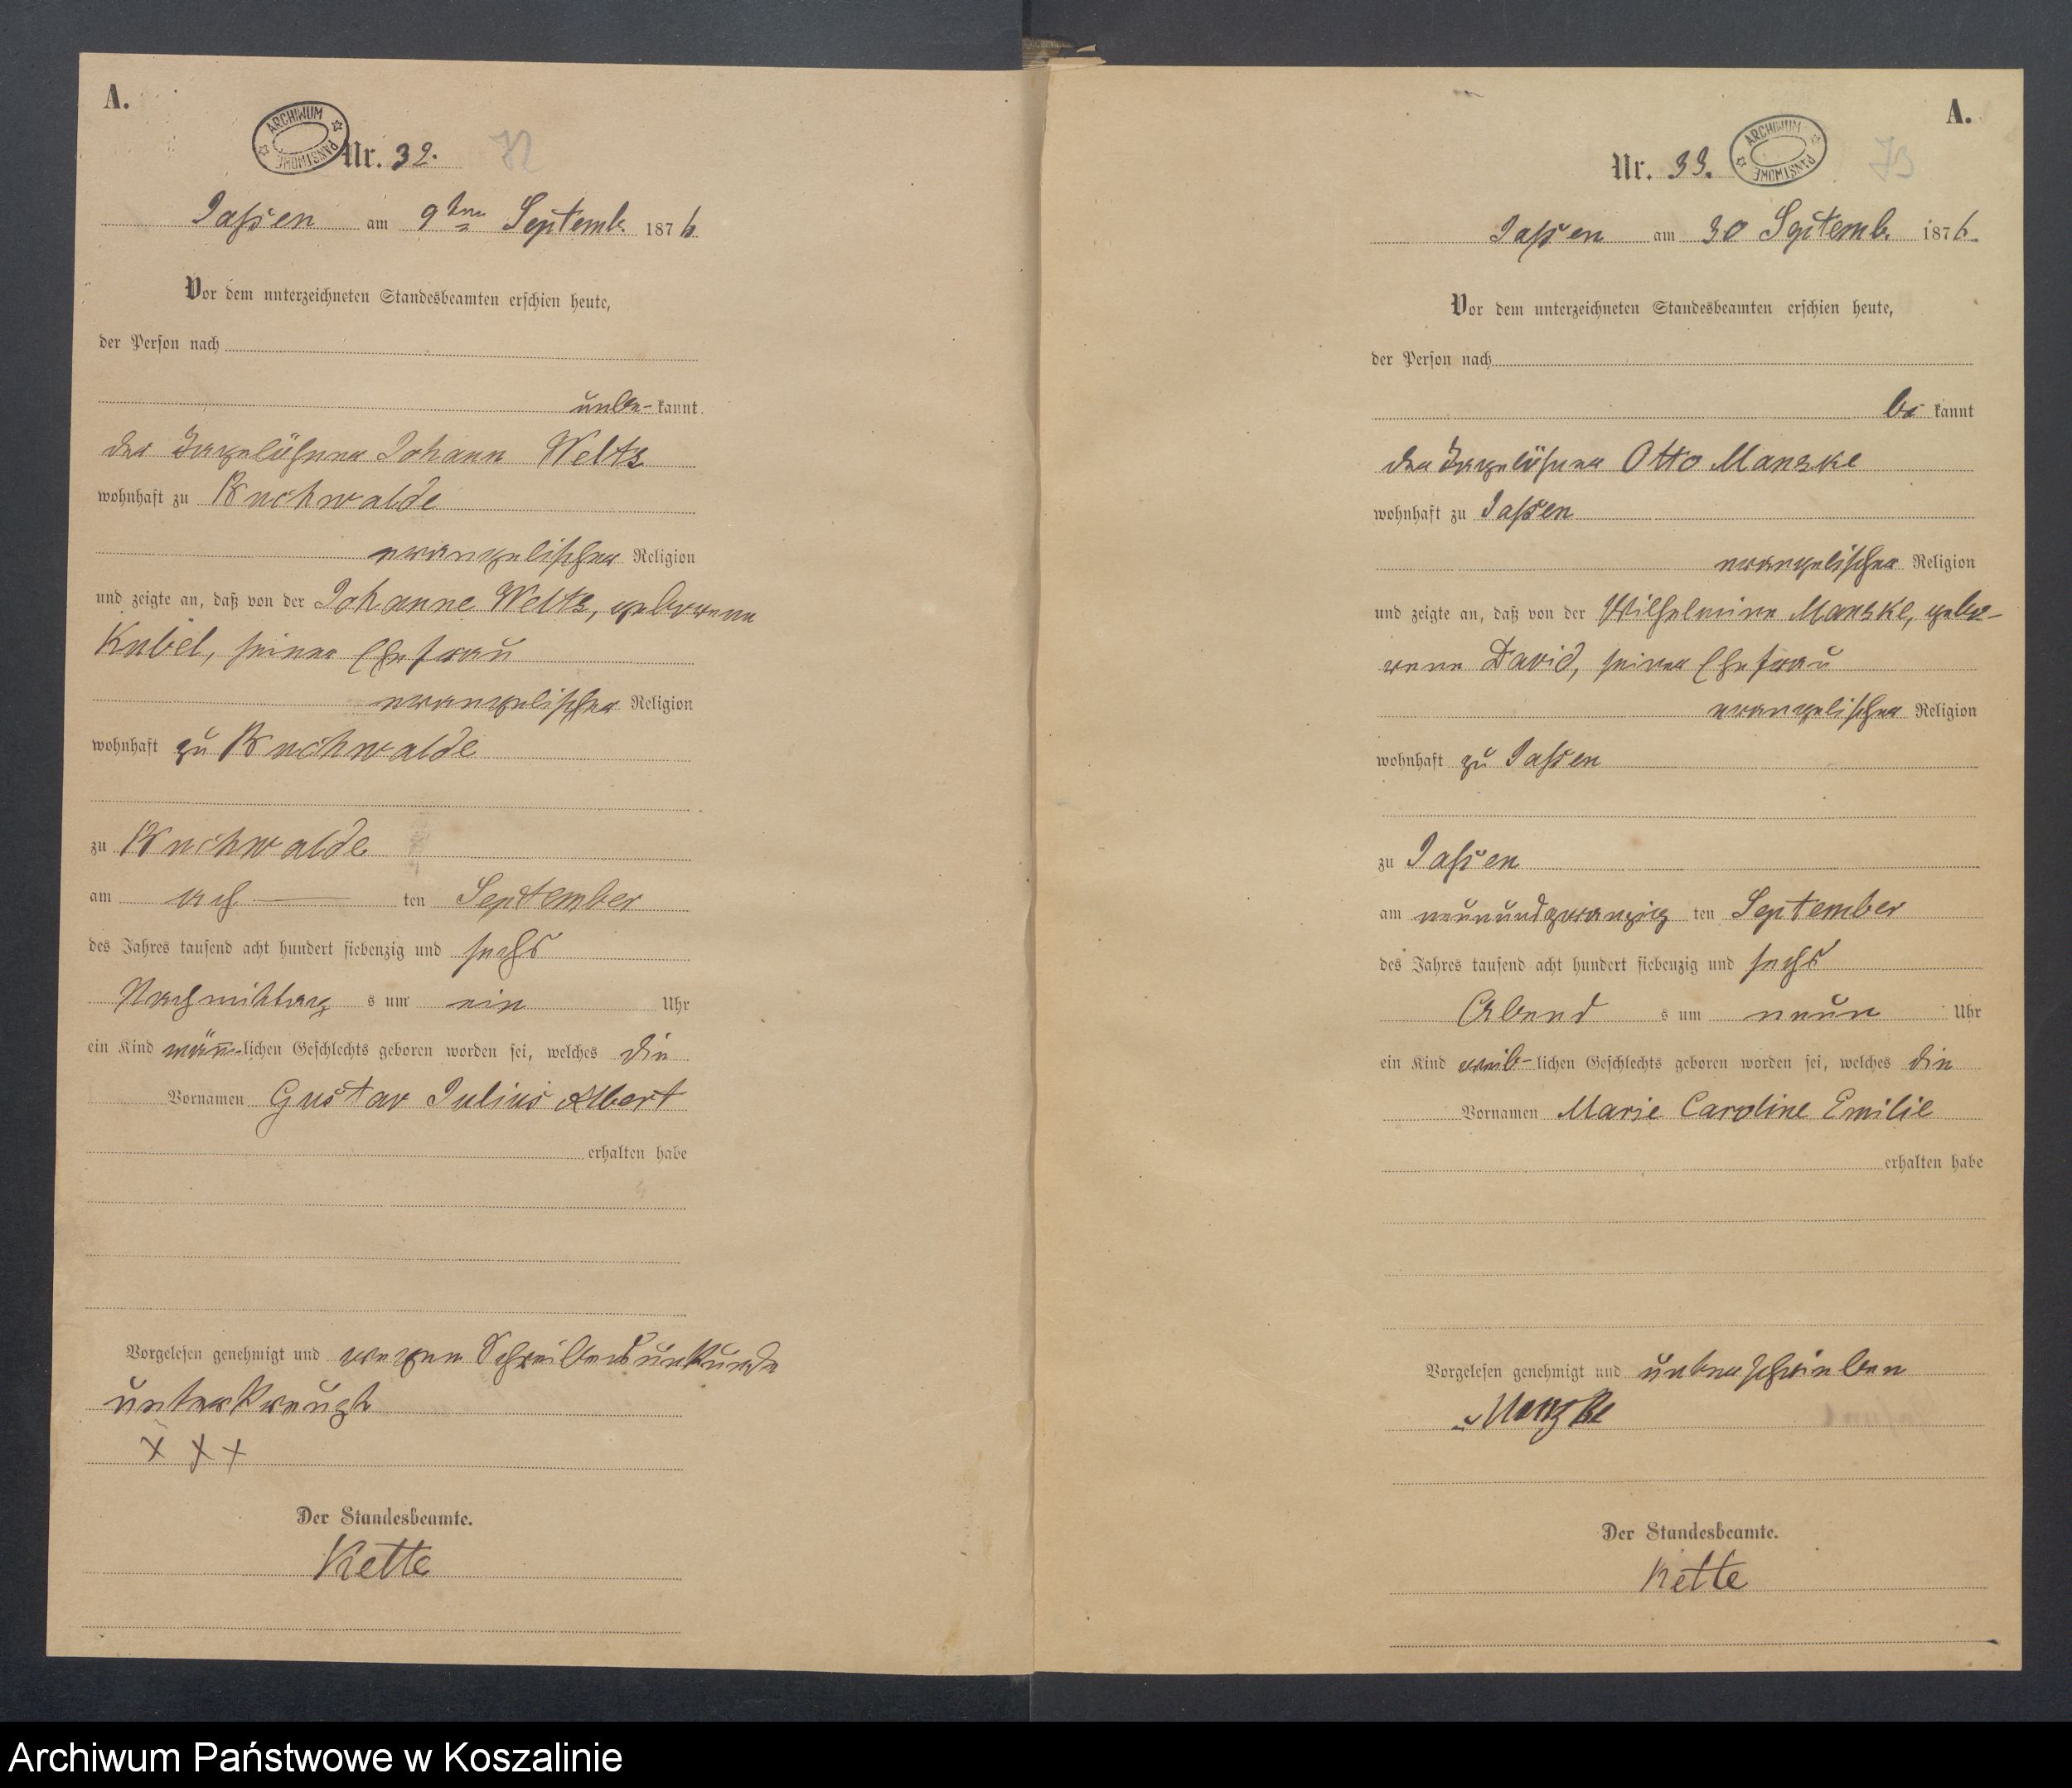 A.
ARCHIWUM PAŃSTWOWE
Nr. 32. 72
Jassen am 9ten Septemb. 1876
Vor dem unterzeichneten Standesbeamten erschien heute,
der Person nach
unbe- kannt.
der Tagelöhner Johann Weltz
wohnhaft zu Buchwalde
evangelischer Religion
und zeigte an, daß von der Johanne Weltz, geborene
Kubel, seiner Ehefrau
evangelischer Religion
wohnhaft zu Buchwalde
zu Buchwalde
am ach ten September
des Jahres tausend acht hundert siebenzig und sechs
Nachmittag s um ein Uhr
ein Kind män-lichen Geschlechts geboren worden sei, welches die
Vornamen Gustav Julius Albert
erhalten habe
Vorgelesen genehmigt und wegen Schreibensunkunde
unterkreuzt
x x x
Der Standesbeamte.
Kette
A.
Nr. 33. 73
ARCHIWUM PAŃSTWOWE
Jassen am 30 Septemb. 1876.
Vor dem unterzeichneten Standesbeamten erschien heute,
der Person nach
be kannt
der Tagelöhner Otto Manzke
wohnhaft zu Jassen
evangelischer Religion
und zeigte an, daß von der Wilhelmine Manzke, gebo-
rene David, seiner Ehefrau
evangelischer Religion
wohnhaft zu Jassen
zu Jassen
am neunundzwanzig ten September
des Jahres tausend acht hundert siebenzig und sechs
Abend s um neun Uhr
ein Kind weib-lichen Geschlechts geboren worden sei, welches die
Vornamen Marie Caroline Emilie
erhalten habe
Vorgelesen genehmigt und unterschrieben
Manzke
Der Standesbeamte.
Kette
Archiwum Państwowe w Koszalinie